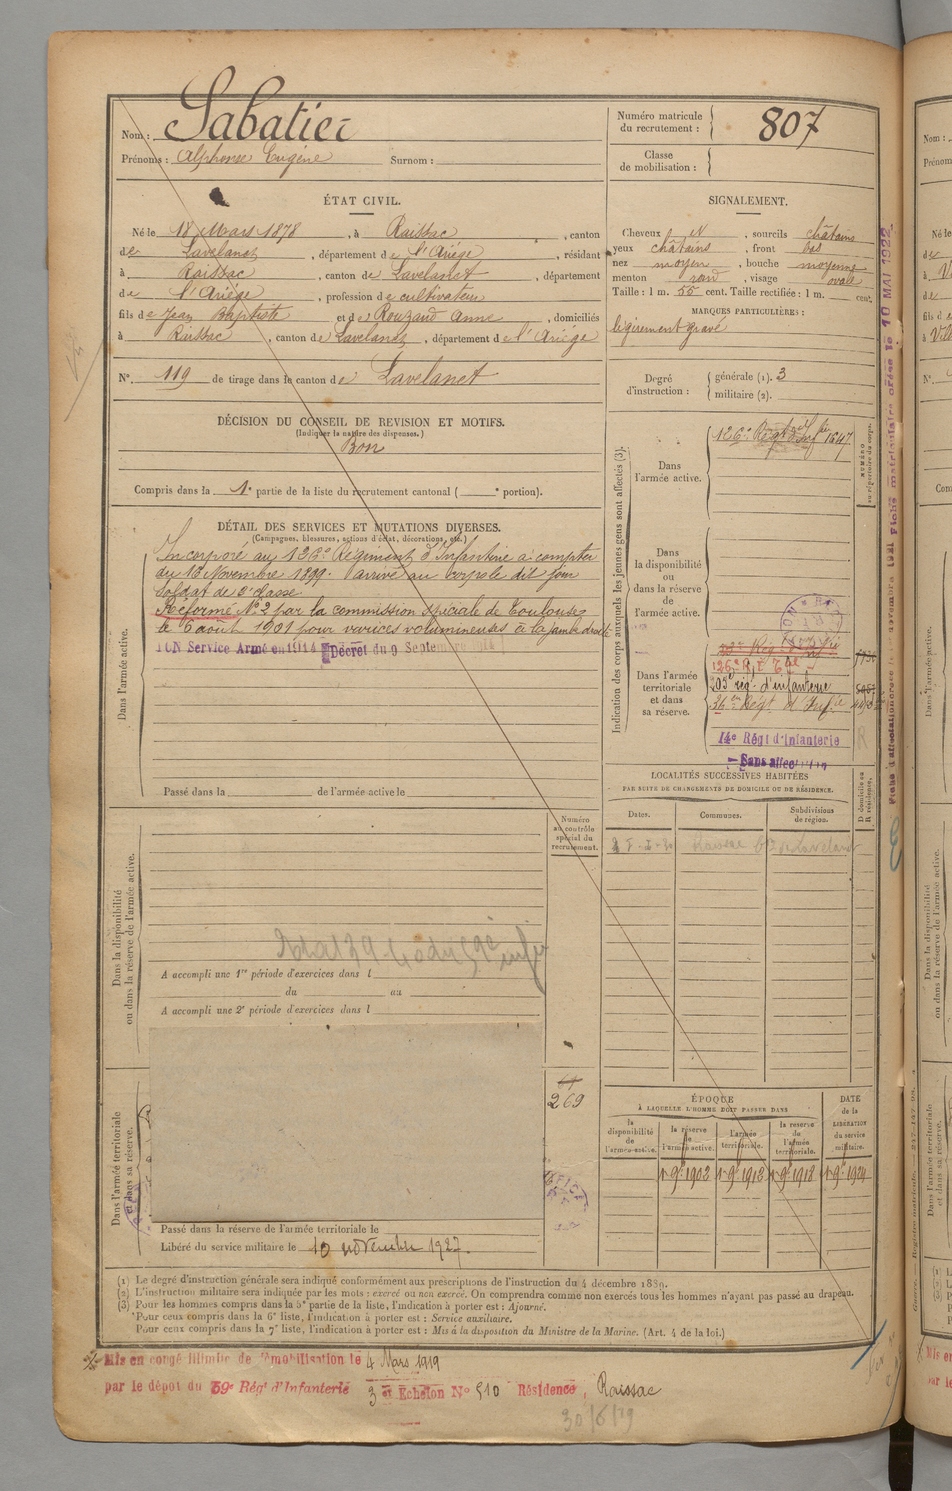 Nom : Sabatier
Prénoms : Alphonse Eugène Surnom :
Numéro matricule du recrutement : 807
Classe de mobilisation :
ÉTAT CIVIL.
Né le 18 Mars 1878, à Raissac, canton
de Lavelanet, département de l'Ariège, résidant
à Raissac, canton de Lavelanet, département
de l'Ariège, profession de cultivateur
fils de Jean Baptiste et de Rouzaud Anne, domiciliés
à Raissac, canton de Lavelanet, département de l'Ariége
N° 119 de tirage dans le canton de Lavelanet
SIGNALEMENT.
Cheveux et, sourcils châtains
yeux châtains, front bas
nez moyen, bouche moyenne
menton rond, visage ovale
Taille : 1 m. 55 cent. Taille rectifiée : 1 m. cent.
MARQUES PARTICULIÈRES :
légèrement gravé
Degré d'instruction : générale (1). 3
militaire (2).
DÉCISION DU CONSEIL DE REVISION ET MOTIFS.
(Indiquer la nature des dispenses.)
Bon
Compris dans la 1e partie de la liste du recrutement cantonal ( e portion).
DÉTAIL DES SERVICES ET MUTATIONS DIVERSES.
(Campagnes, blessures, actions d'éclat, décorations, etc.)
Dans l'armée active.
Incorporé au 126e Régiment d'Infanterie à compter
du 16 Novembre 1899. arrivé au corps le dit jour
Soldat de 2e classe.
Réformé N° 2 par la commission spéciale de Toulouse
le 6 août 1901 pour varices volumineuses à la jambe droite
BON Service Armé en 1914 Décret du 9 Septembre 1914
Passé dans la de l'armée active le
Indication des corps auxquels les jeunes gens sont affectés (3).
NUMÉRO au répertoire du corps.
Dans l'armée active.
126e Regt d'Inf ie 1647
Dans la disponibilité ou dans la réserve de l'armée active.
Dans l'armée territoriale et dans sa réserve.
126e R. I. Tal
203e rég. d'infanterie
36 Régt d'Inf ie
14e Régt d'Infanterie
Sans affectation
LOCALITÉS SUCCESSIVES HABITÉES
PAR SUITE DE CHANGEMENTS DE DOMICILE OU DE RÉSIDENCE.
Dates. Communes. Subdivisions de région. D domicile ou R résidence.
Dans la disponibilité ou dans la réserve de l'armée active.
Numéro au contrôle spécial du recrutement.
A accompli une 1re période d'exercices dans l
du au
A accompli une 2e période d'exercices dans l
Dans l'armée territoriale et dans sa réserve.
269
Passé dans la réserve de l'armée territoriale le
Libéré du service militaire le 10 novembre 1927.
ÉPOQUE
À LAQUELLE L'HOMME DOIT PASSER DANS
la disponibilité de l'armée active. la réserve de l'armée active. l'armée territoriale. la réserve de l'armée territoriale. DATE de la LIBÉRATION du service militaire.
1902 1912 1918 1924
(1) Le degré d'instruction générale sera indiqué conformément aux prescriptions de l'instruction du 4 décembre 1889.
(2) L'instruction militaire sera indiquée par les mots : exercé ou non exercé. On comprendra comme non exercés tous les hommes n'ayant pas passé au drapeau.
(3) Pour les hommes compris dans la 5e partie de la liste, l'indication à porter est : Ajourné.
Pour ceux compris dans la 6e liste, l'indication à porter est : Service auxiliaire.
Pour ceux compris dans la 7e liste, l'indication à porter est : Mis à la disposition du Ministre de la Marine. (Art. 4 de la loi.)
Mis en congé illimité de démobilisation le 4 Mars 1919
par le dépot du 59e Régt d'Infanterie 3 et Echelon N° 510 Résidence, Raissac
30/6/19